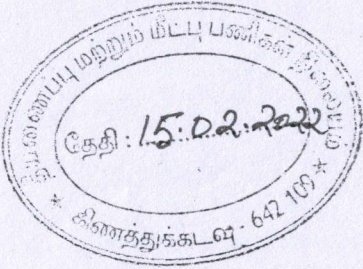 தீயணைப்பு மற்றும் மீட்பு பணிகள் நிலையம்
தேதி : 15.02.2022
★ கிணத்துக்கடவு - 642 109 ★